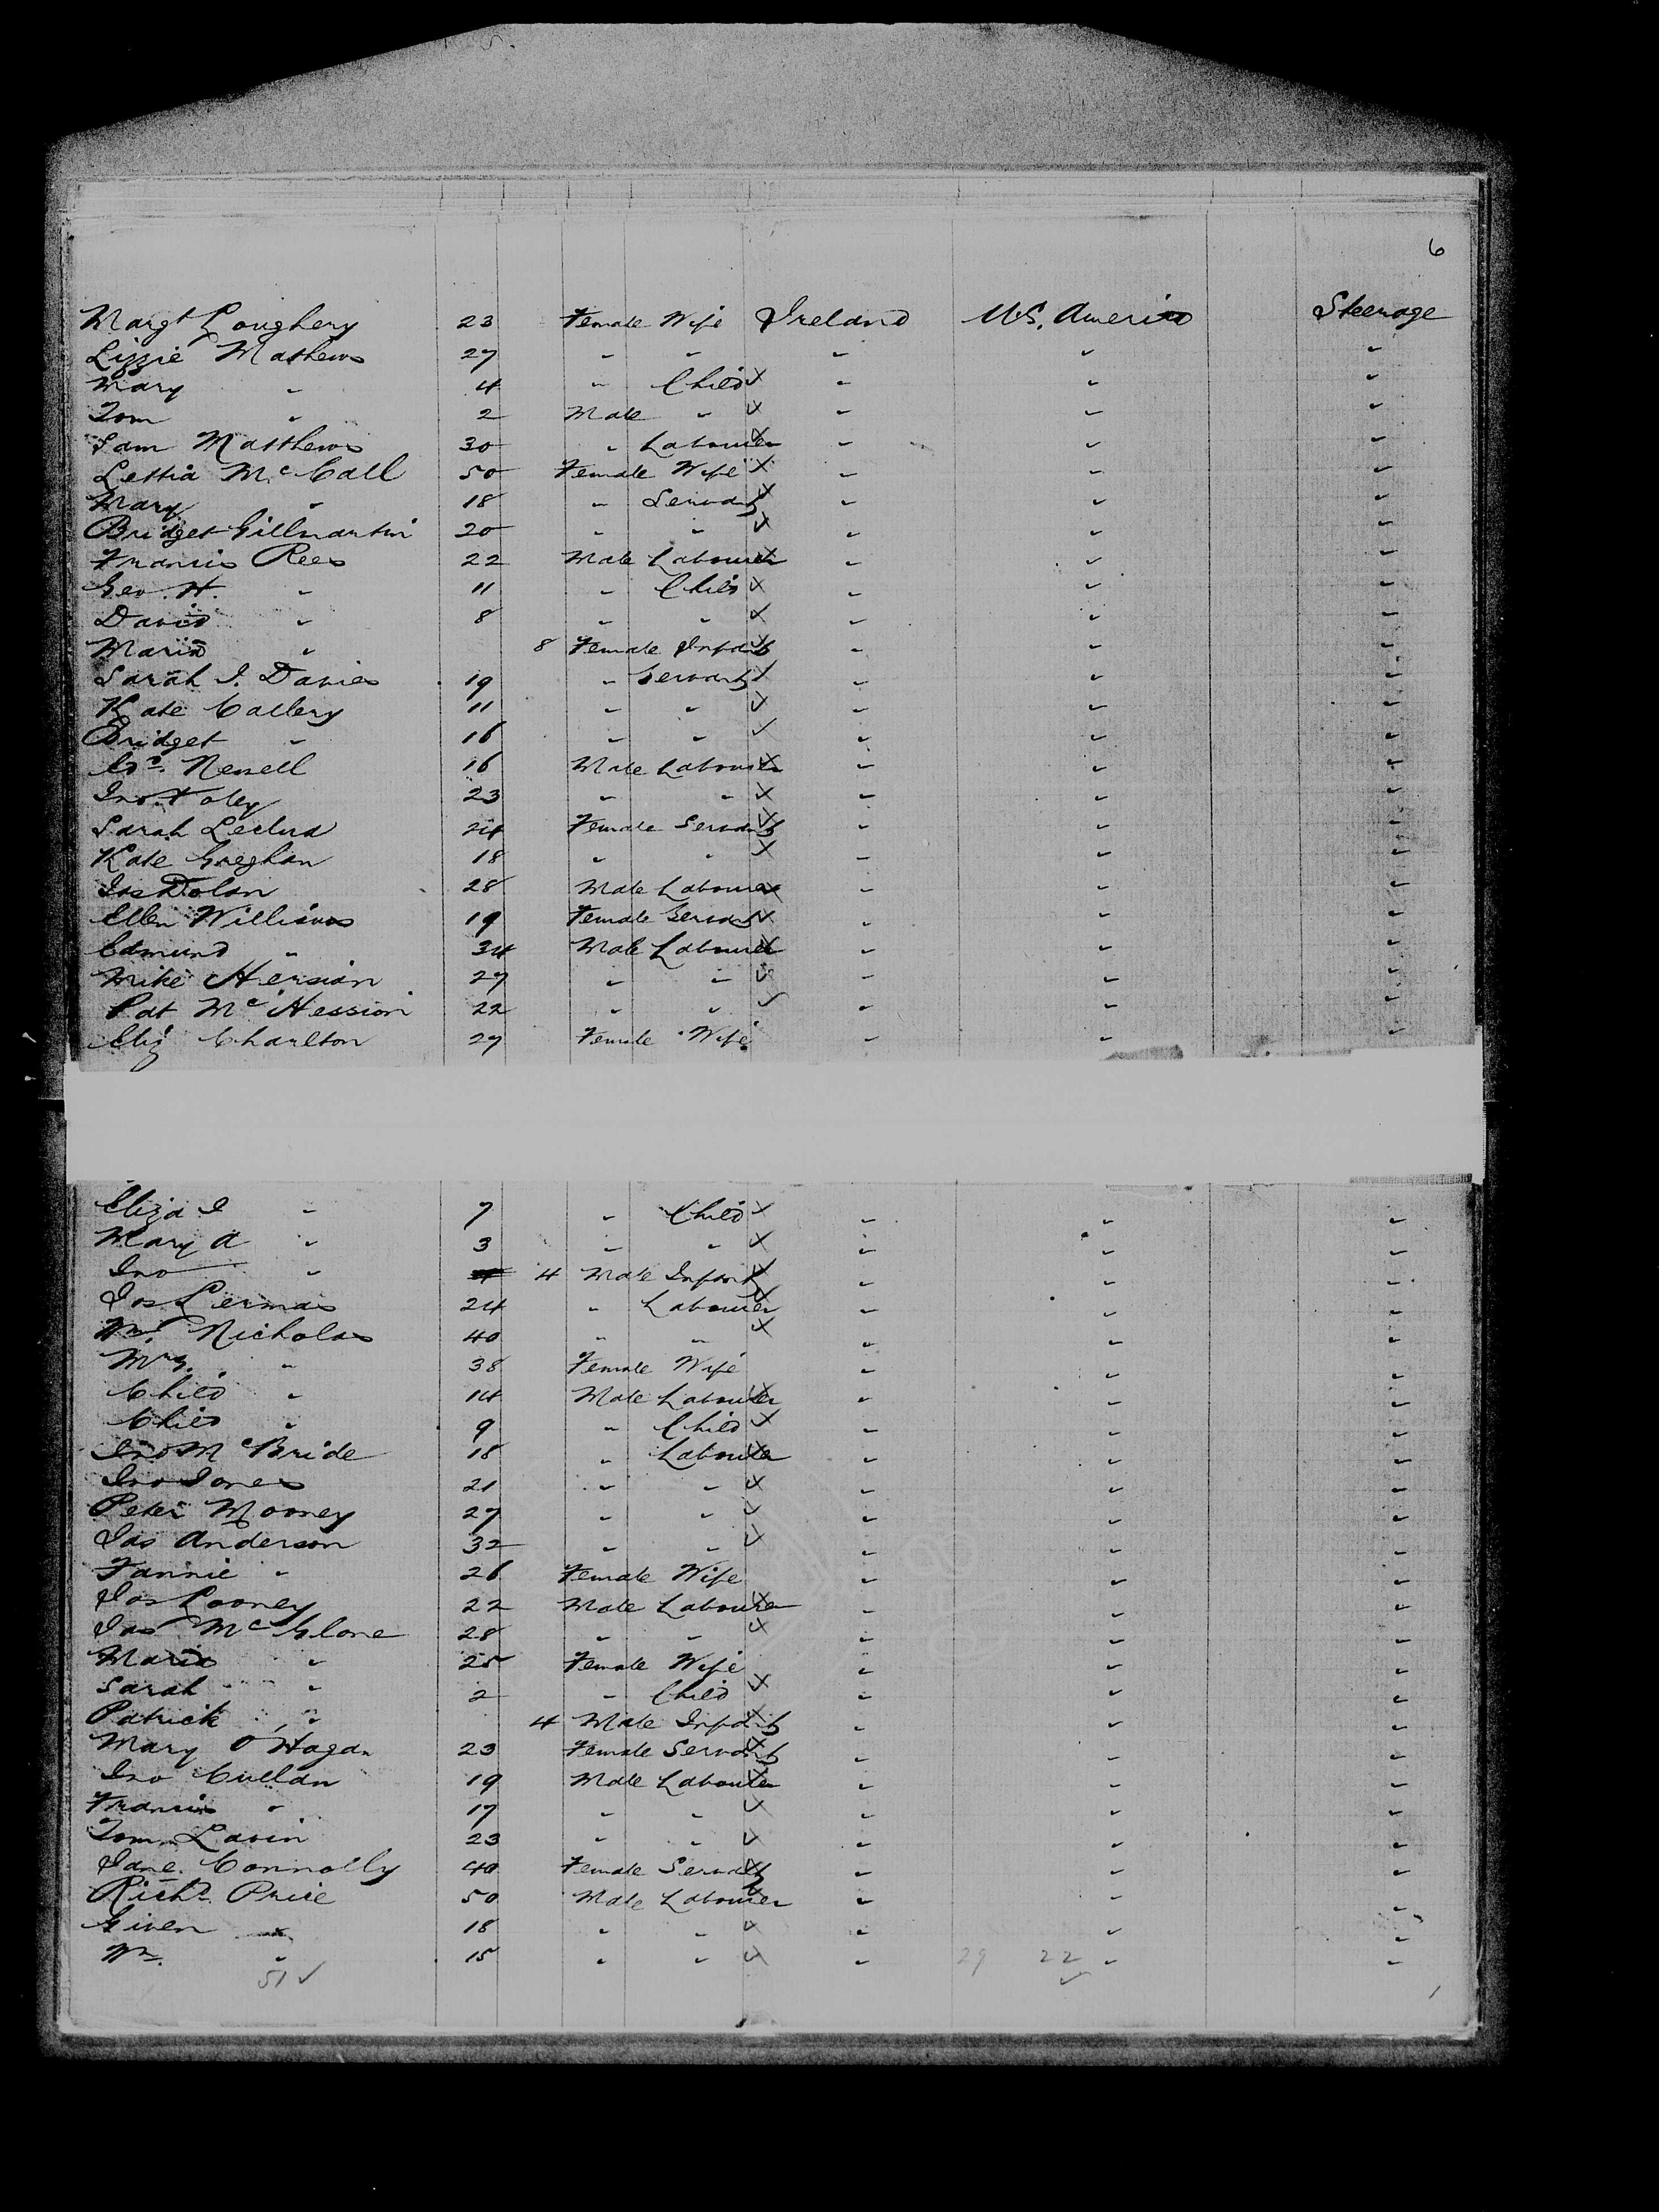 6
Margt Loughery 23 Female Wife Ireland U.S. America Steerage
Lizzie Mathews 27 " " " " "
Mary " 4 " Child " " "
Tom " 2 Male " " " "
Sam Matthews 30 " Labourer " " "
Lettia McCall 50 Female Wife " " "
Mary " 18 " Servant " " "
Bridget Gillmartin 20 " " " " "
Francis Rees 22 Male Labourer " " "
Geo. H. " 11 " Child " " "
David " 8 " " " " "
Maria " 8 Female Infant " " "
Sarah J. Davies 19 " Servant " " "
Kate Callery 11 " " " " "
Bridget " 16 " " " " "
Newell 16 Male Labourer " " "
Jno Foley 23 " " " " "
Sarah 24 Female Servant " " "
Kate Greghan 18 " " " " "
Jas Dolan 28 Male Labourer " " "
Ellen Williams 19 Female Servant " " "
Edmund " 34 Male Labourer " " "
Mike Hersian 27 " " " " "
Pat McHession 22 " " " " "
Eliz Charlton 27 Female Wife " " "
Eliza J " 7 " Child " " "
Mary A " 3 " " " " "
Jno " 4 Male Infant " " "
Jos Liermas 24 " Labourer " " "
Mr. Nicholas 40 " " " " "
Mrs. " 38 Female Wife " " "
Child " 14 Male Labourer " " "
Child " 9 " Child " " "
Jno McBride 18 " Labourer " " "
Jno Jones 21 " " " " "
Peter Mooney 27 " " " " "
Jas Anderson 32 " " " " "
Fannie " 26 Female Wife " " "
Jas Looney 22 Male Labourer " " "
Jas McGlone 28 " " " " "
Maria " 25 Female Wife " " "
Sarah " 2 " Child " " "
Patrick " 4 Male Infant " " "
Mary O'Hagan 23 Female Servant " " "
Jno Cullan 19 Male Labourer " " "
Francis " 17 " " " " "
Tom Lavin 23 " " " " "
Jane Connolly 40 Female Servant " " "
Richd. Price 50 Male Labourer " " "
Given " 18 " " " " "
Wm. " 15 " " " 29 22 " "
51 ✓ ✓